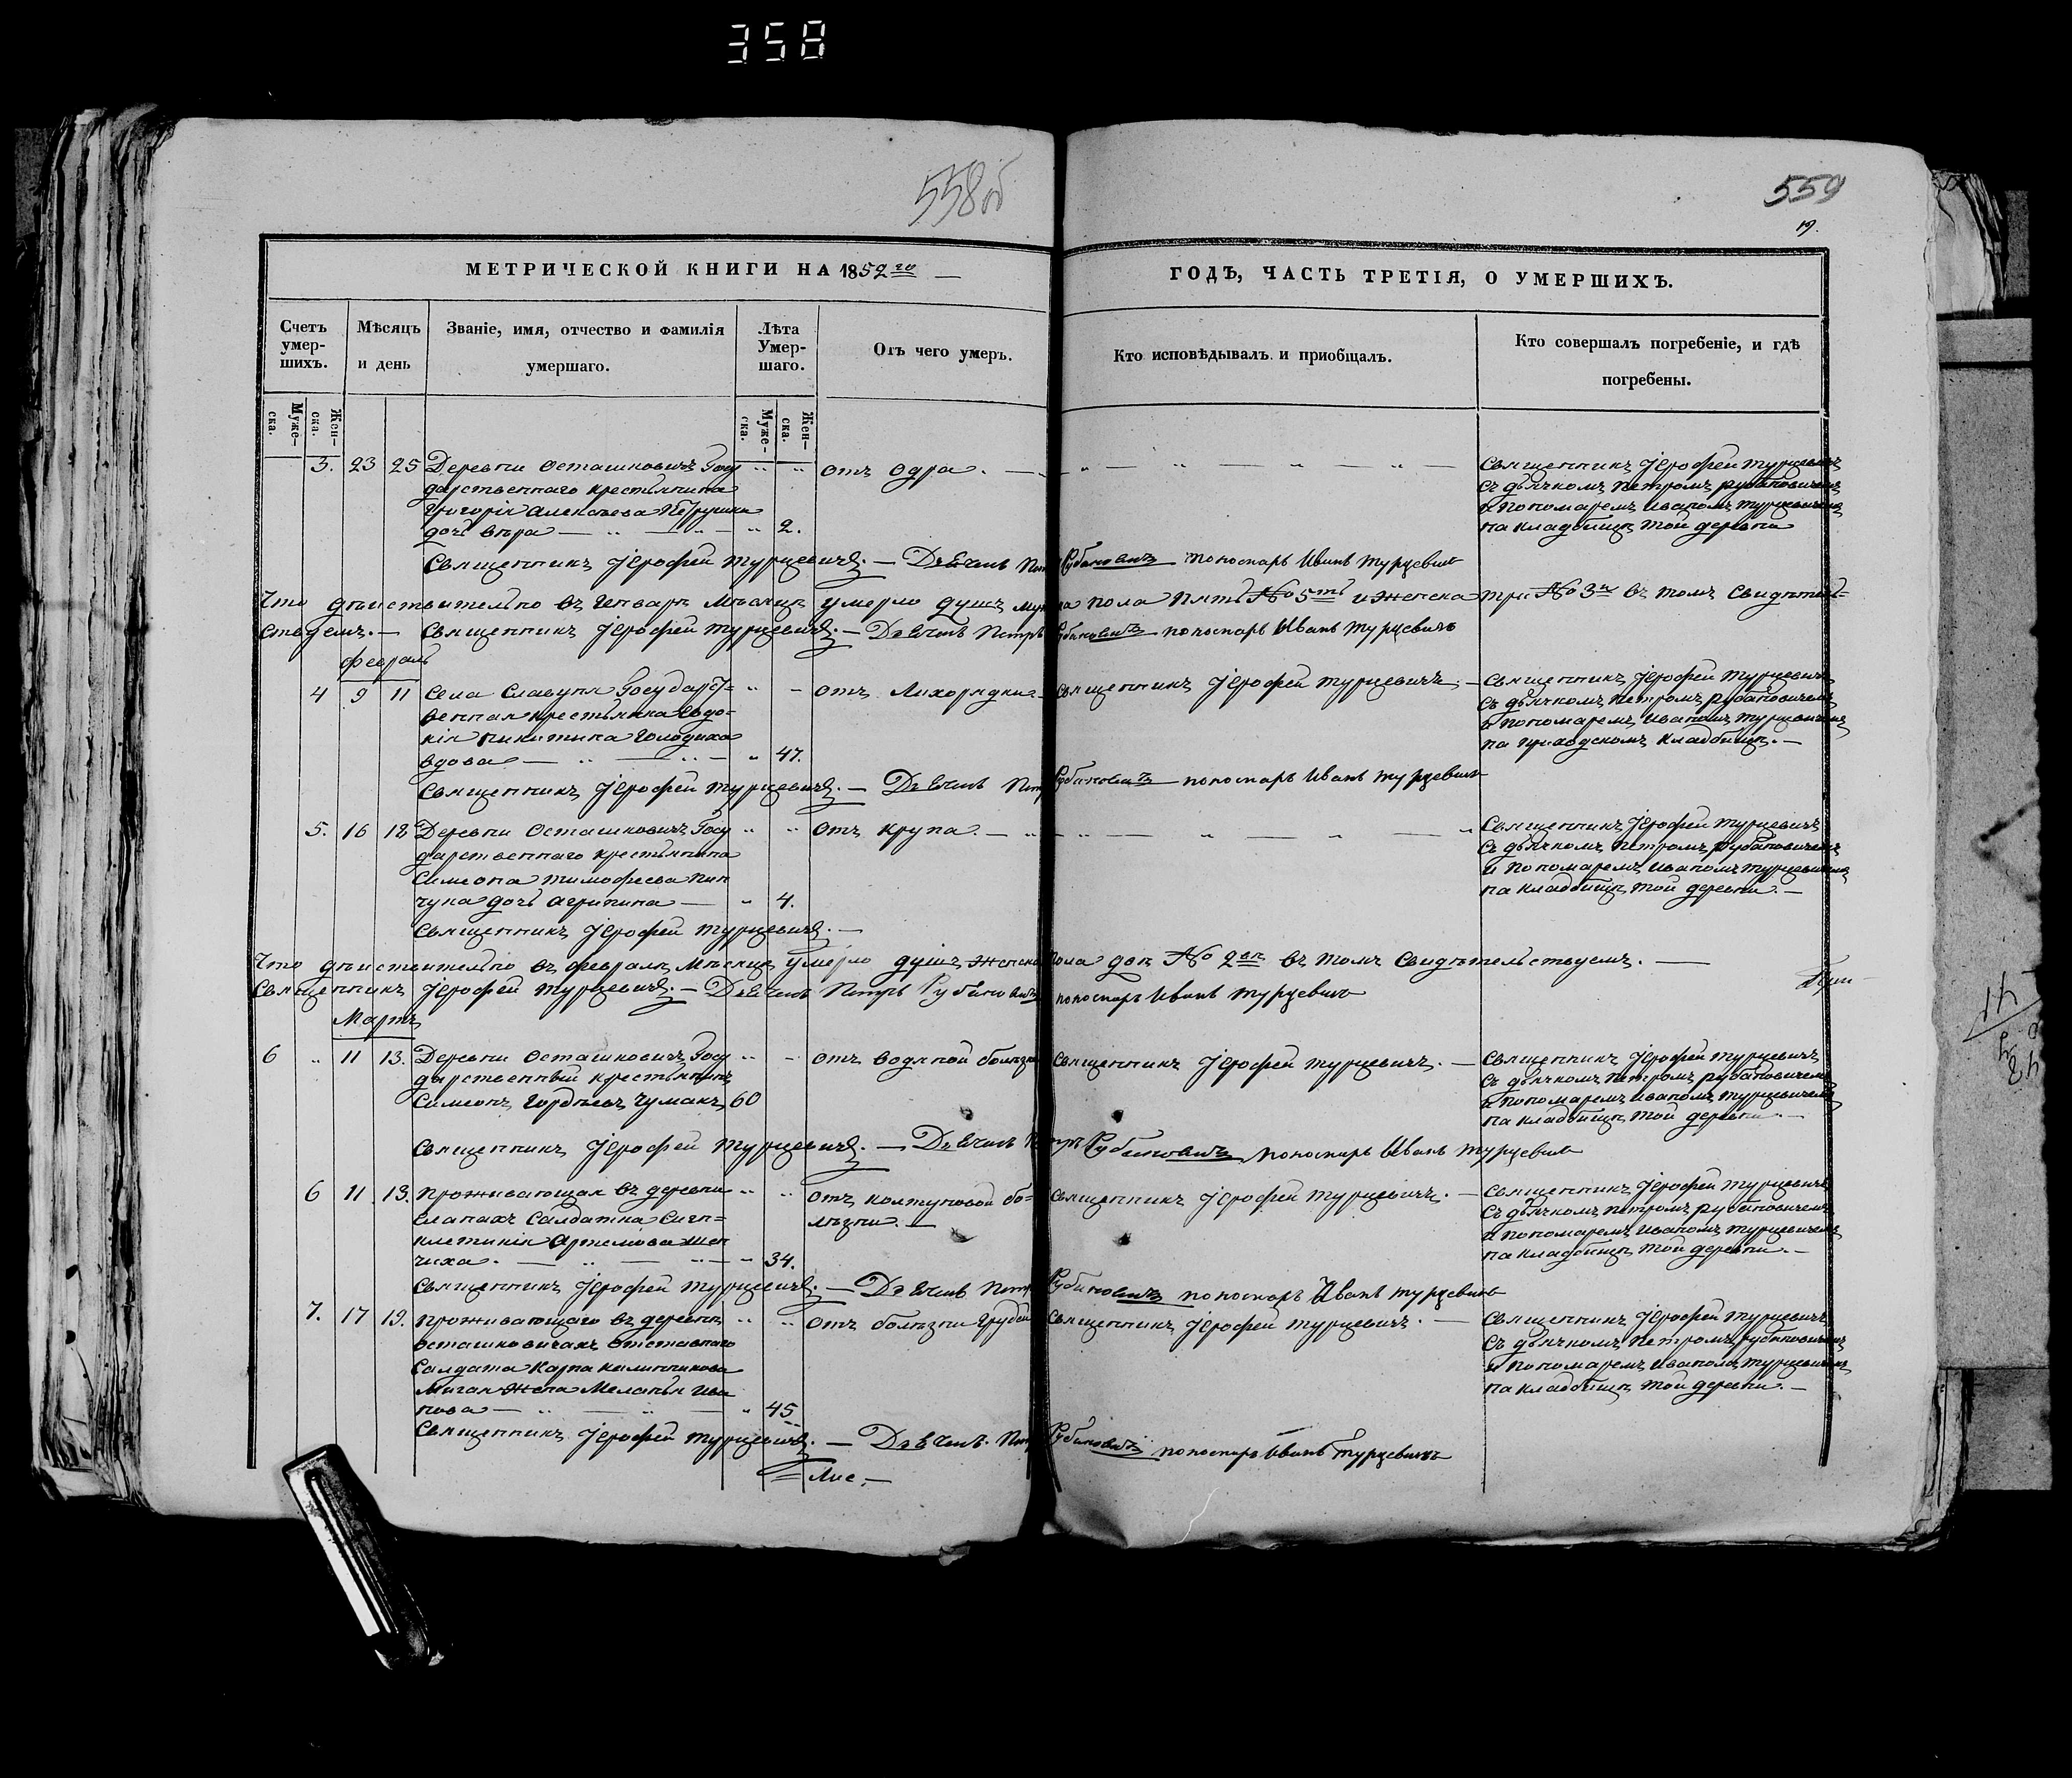 358
558об
559
19.
МЕТРИЧЕСКОЙ КНИГИ НА 1852го
ГОДЪ, ЧАСТЬ ТРЕТІЯ, О УМЕРШИХЪ.
Счетъ умер-шихъ.
Мѣсяцъ и день
Званіе, имя, отчество и фамилія умершаго.
Лѣта Умер-шаго.
Отъ чего умеръ.
Кто исповѣдывалъ и приобщалъ.
Кто совершалъ погребеніе, и гдѣ погребены.
Муже-ска.
Жен-ска.
Муже-ска.
Жен-ска.
3. 23 25 Деревни Осташковичъ Госу
дарственнаго крестьянина
Григорія Алексѣева Петрушки
дочь Вѣра 2.
отъ одра.
Священникъ Іерофей Турцевичъ
съ дьячкомъ Петромъ Рубановичемъ
и пономаремъ Иваномъ Турцевичемъ
на кладбищѣ той деревни
Священникъ Іерофей Турцевичъ. — Дьячекъ Петръ Рубановичъ пономарь Иванъ Турцевичъ
Что дѣйствительно въ Генварѣ мѣсяцѣ умерло душъ мужеска пола пять № 5ть и женска три № 3и въ томъ свидѣтель=
ствуемъ. — Священникъ Іерофей Турцевичъ. — Дьячекъ Петръ Рубановичъ пономарь Иванъ Турцевичъ
Февраль
4 9 11 Села Славуня Государст=
венная крестьянка Евдо=
кія Никитина Голодиха
вдова 47.
отъ лихорадки
Священникъ Іерофей Турцевичъ. —
Священникъ Іерофей Турцевичъ
съ дьячкомъ Петромъ Рубановичемъ
и пономаремъ Иваномъ Турцевичемъ
на приходскомъ кладбищѣ. —
Священникъ Іерофей Турцевичъ. — Дьячекъ Петръ Рубановичъ — пономарь Иванъ Турцевичъ
5. 16 18 Деревни Осташковичъ Госу
дарственнаго крестьянина
Симеона Тимофеева Пин
чука дочь Агрипина 4.
отъ крупа. —
Священникъ Іерофей Турцевичъ
съ дьячкомъ Петромъ Рубановичемъ
и пономаремъ Иваномъ Турцевичемъ
на кладбищѣ той деревни. —
Священникъ Іерофей Турцевичъ. —
Что дѣйствительно въ Февралѣ мѣсяцѣ умерло душъ женска пола двѣ № 2вѣ въ томъ свидѣтельствуемъ. —
Священникъ Іерофей Турцевичъ. — Дьячекъ Петръ Рубановичъ пономарь Иванъ Турцевичъ
Мартъ
6 11 13. Деревни Осташковичъ Госу
дарственный крестьянинъ
Симеонъ Гордѣевъ Чумакъ 60
отъ водяной болѣзни
Священникъ Іерофей Турцевичъ. —
Священникъ Іерофей Турцевичъ
съ дьячкомъ Петромъ Рубановичемъ
и пономаремъ Иваномъ Турцевичемъ
на кладбищѣ той деревни. —
Священникъ Іерофей Турцевичъ. — Дьячекъ Петръ Рубановичъ пономарь Иванъ Турцевичъ
6 11 13. Проживающая въ деревни
Слапахъ салдатка Сигн=
клетикія Артемова Шев
чиха. 34.
отъ колтуновой бо=
лѣзни. —
Священникъ Іерофей Турцевичъ. —
Священникъ Іерофей Турцевичъ
съ дьячкомъ Петромъ Рубановичемъ
и пономаремъ Иваномъ Турцевичемъ
на кладбищѣ той деревни. —
Священникъ Іерофей Турцевичъ. — Дьячекъ Петръ Рубановичъ пономарь Иванъ Турцевичъ
7. 17 19. Проживающаго въ деревнѣ
Осташковичахъ отставнаго
салдата Карпа Калинникова
жена Меланья Ива
нова 45
отъ болѣзни груди
Священникъ Іерофей Турцевичъ. —
Священникъ Іерофей Турцевичъ
съ дьячкомъ Петромъ Рубановичемъ
и пономаремъ Иваномъ Турцевичемъ
на кладбищѣ той деревни. —
Священникъ Іерофей Турцевичъ. — Дьячекъ Петръ Рубановичъ пономарь Иванъ Турцевичъ